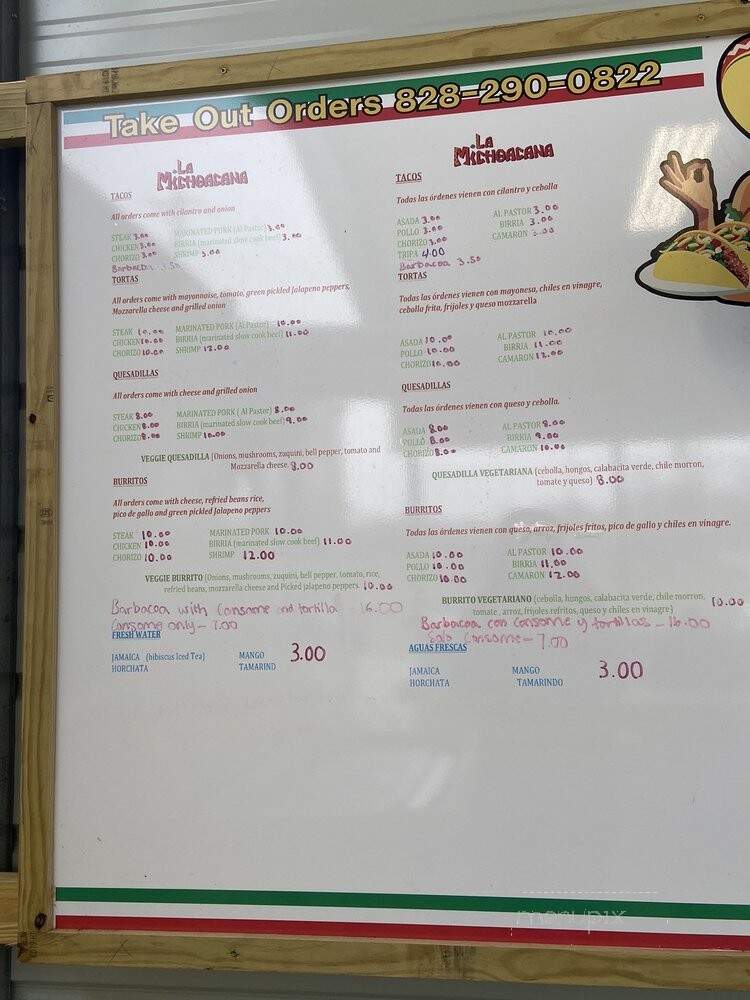 Take Out Orders 828-290-0822
LA
MICHOACANA
TACOS
All orders come with cilantro and onion
STEAK 3.00 MARINATED PORK (Al Pastor) 3.00
CHICKEN 3.00 BIRRIA (marinated slow cook beef) 3.00
CHORIZO 3.00 SHRIMP 3.00
Barbacoa 3.50
TORTAS
All orders come with mayonnaise, tomato, green pickled Jalapeno peppers,
Mozzarella cheese and grilled onion
STEAK 10.00 MARINATED PORK (Al Pastor) 10.00
CHICKEN 10.00 BIRRIA (marinated slow cook beef) 11.00
CHORIZO 10.00 SHRIMP 12.00
QUESADILLAS
All orders come with cheese and grilled onion
STEAK 8.00 MARINATED PORK ( Al Pastor) 8.00
CHICKEN 8.00 BIRRIA (marinated slow cook beef) 9.00
CHORIZO 8.00 SHRIMP 10.00
VEGGIE QUESADILLA (Onions, mushrooms, zuquini, bell pepper, tomato and
Mozzarella cheese. 8.00
BURRITOS
All orders come with cheese, refried beans rice,
pico de gallo and green pickled Jalapeno peppers
STEAK 10.00 MARINATED PORK 10.00
CHICKEN 10.00 BIRRIA (marinated slow cook beef) 11.00
CHORIZO 10.00 SHRIMP 12.00
VEGGIE BURRITO (Onions, mushrooms, zuquini, bell pepper, tomato, rice,
refried beans, mozzarella cheese and Picked jalapeno peppers. 10.00
Barbacoa with Consome and tortilla - 16.00
Consome only - 7.00
FRESH WATER
JAMAICA (hibiscus Iced Tea) MANGO 3.00
HORCHATA TAMARIND
LA
MICHOACANA
TACOS
Todas las órdenes vienen con cilantro y cebolla
ASADA 3.00 AL PASTOR 3.00
POLLO 3.00 BIRRIA 3.00
CHORIZO 3.00 CAMARON 3.00
TRIPA 4.00
Barbacoa 3.50
TORTAS
Todas las órdenes vienen con mayonesa, chiles en vinagre,
cebolla frita, frijoles y queso mozzarella
ASADA 10.00 AL PASTOR 10.00
POLLO 10.00 BIRRIA 11.00
CHORIZO 10.00 CAMARON 12.00
QUESADILLAS
Todas las órdenes vienen con queso y cebolla.
ASADA 8.00 AL PASTOR 8.00
POLLO 8.00 BIRRIA 9.00
CHORIZO 8.00 CAMARON 10.00
QUESADILLA VEGETARIANA (cebolla, hongos, calabacita verde, chile morron,
tomate y queso) 8.00
BURRITOS
Todas las órdenes vienen con queso, arroz, frijoles fritos, pico de gallo y chiles en vinagre.
ASADA 10.00 AL PASTOR 10.00
POLLO 10.00 BIRRIA 11.00
CHORIZO 10.00 CAMARON 12.00
BURRITO VEGETARIANO (cebolla, hongos, calabacita verde, chile morron, 10.00
tomate, arroz, frijoles refritos, queso y chiles en vinagre)
Barbacoa con consome y tortillas - 16.00
Solo Consome - 7.00
AGUAS FRESCAS
JAMAICA MANGO 3.00
HORCHATA TAMARINDO
menupix